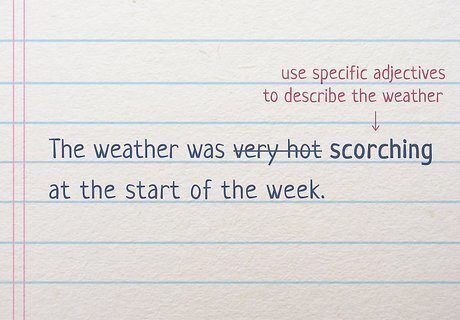 use specific adjectives
to describe the weather
The weather was very hot scorching
at the start of the week.